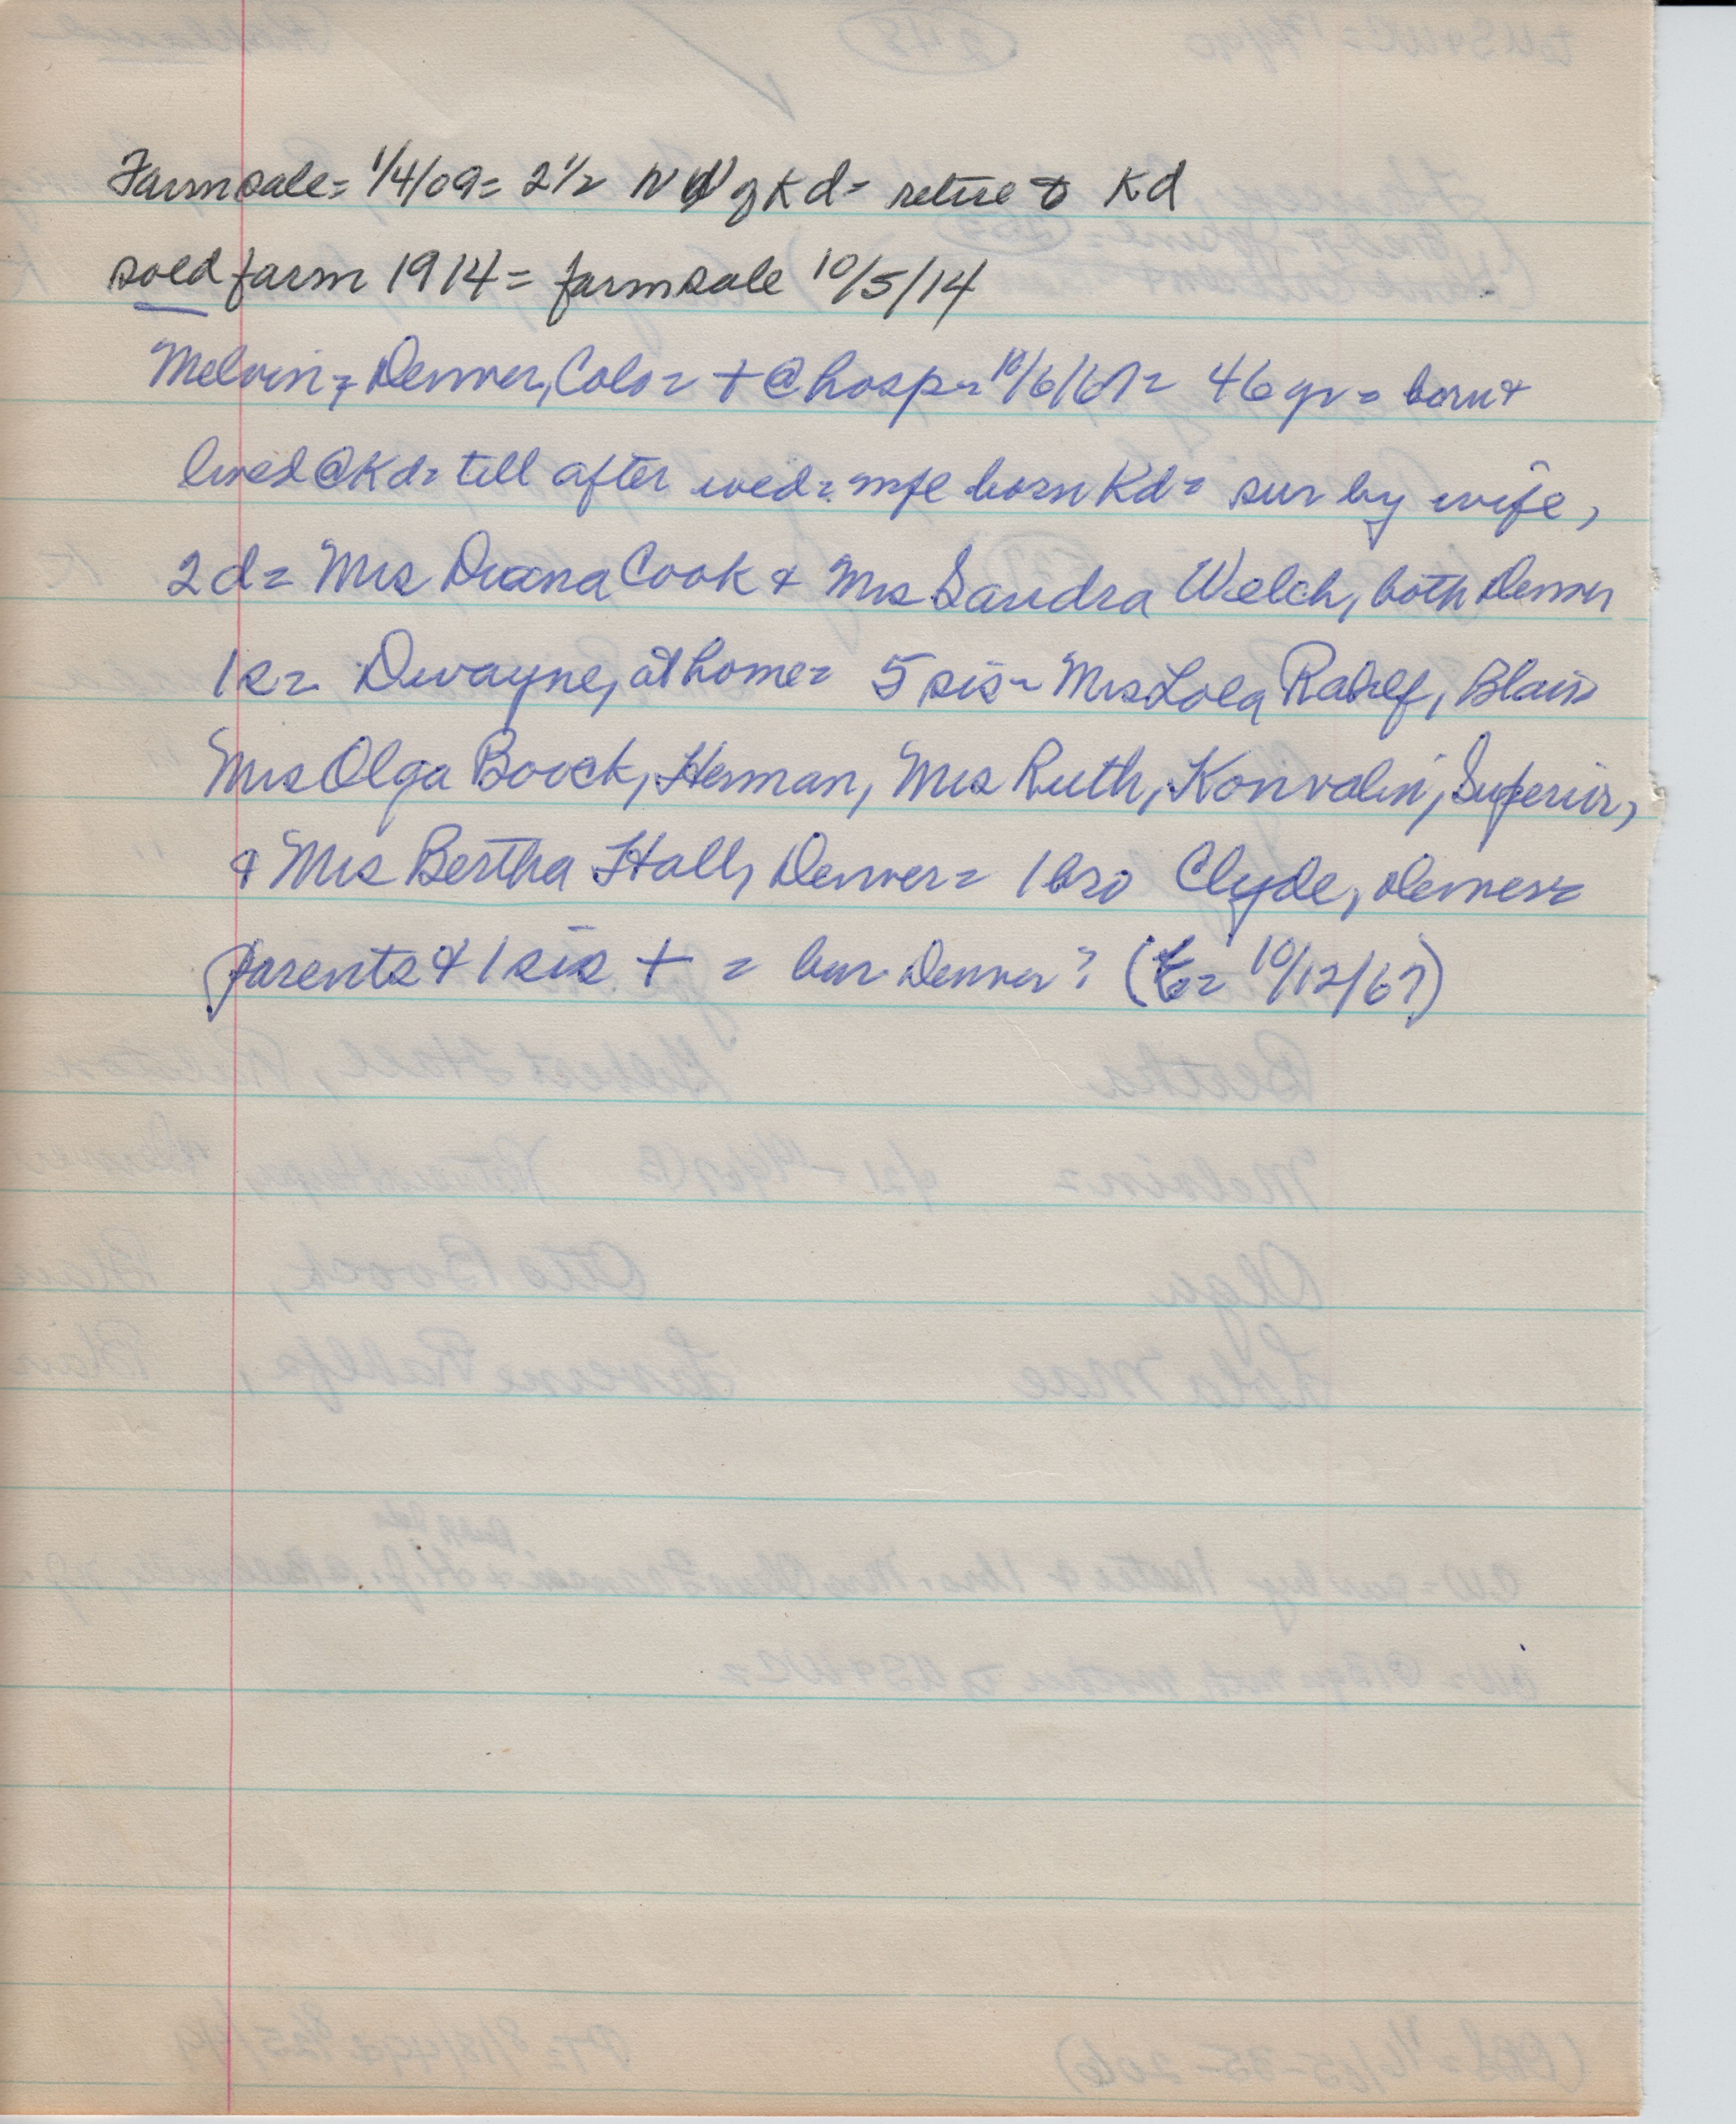 Farm sale = 1/4/09 = 2 1/2 N W of Kd = retire to Kd
sold farm 1914 = farm sale 10/5/14
Melvin = Denver, Colo = + @ hosp = 10/6/67 = 46 yr = born &
lived @ Kd = till after wed = wife born Kd = sur by wife,
2 d = Mrs Diana Cook & Mrs Sandra Welch, both Denver
1 s = Dwayne, at home = 5 sis = Mrs Lola Rahlf, Blair
Mrs Olga Boock, Herman, Mrs Ruth, Konvalin, Superior,
& Mrs Bertha Hall, Denver = 1 bro Clyde, Denver =
parents & 1 sis + = bur Denver? ( = 10/12/67)
Bertha Gilbert Hall,
Melvin =
Olga Otto Boock, Blair
Lola Mae Laverne Rahlfs, Blair